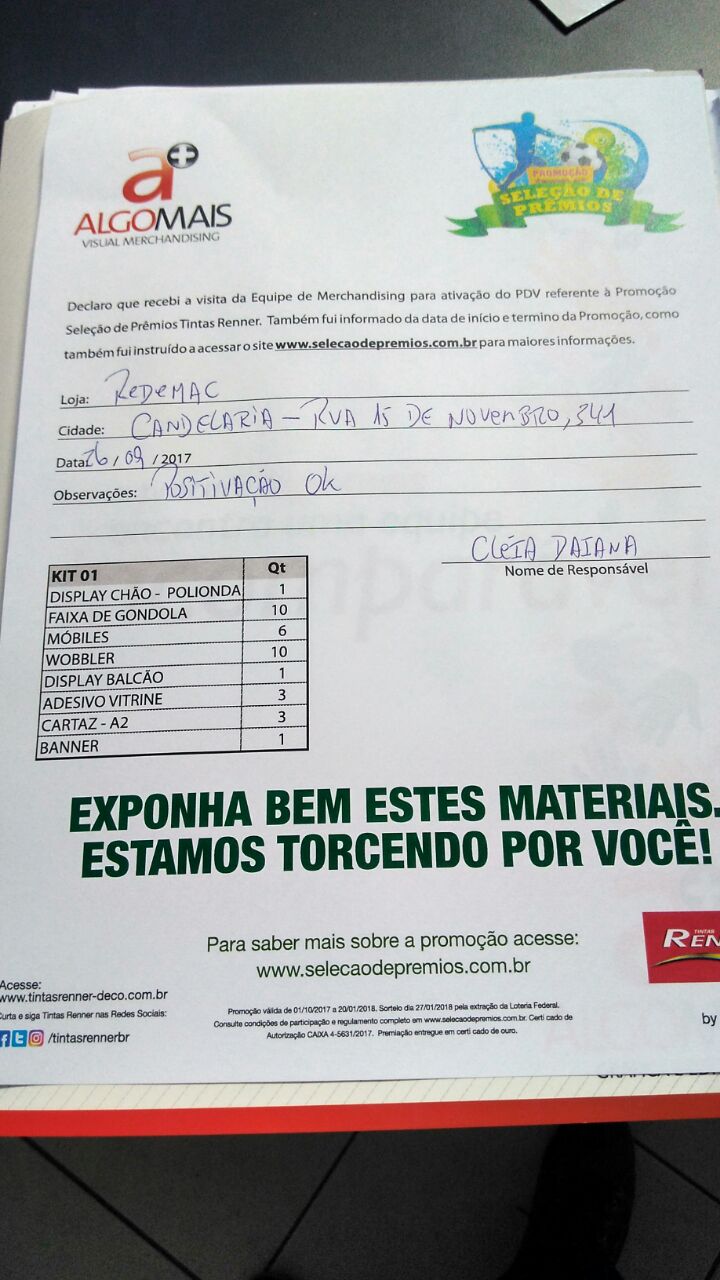 a+
ALGOMAIS
VISUAL MERCHANDISING
PROMOÇÃO
SELEÇÃO DE
PRÊMIOS
Declaro que recebi a visita da Equipe de Merchandising para ativação do PDV referente à Promoção
Seleção de Prêmios Tintas Renner. Também fui informado da data de início e termino da Promoção, como
também fui instruído a acessar o site www.selecaodepremios.com.br para maiores informações.
Loja: REDEMAC
Cidade: CANDELARIA - RUA 15 DE NOVEMBRO, 341
Data: 26 / 09 / 2017
Observações: POSITIVAÇÃO OK
CLÉIA DAIANA
Nome de Responsável
KIT 01 Qt
DISPLAY CHÃO - POLIONDA 1
FAIXA DE GONDOLA 10
MÓBILES 6
WOBBLER 10
DISPLAY BALCÃO 1
ADESIVO VITRINE 3
CARTAZ - A2 3
BANNER 1
EXPONHA BEM ESTES MATERIAIS.
ESTAMOS TORCENDO POR VOCÊ!
Para saber mais sobre a promoção acesse:
www.selecaodepremios.com.br
TINTAS
REN
Acesse:
www.tintasrenner-deco.com.br
Curta e siga Tintas Renner nas Redes Sociais:
/tintasrennerbr
Promoção válida de 01/10/2017 a 20/01/2018. Sorteio dia 27/01/2018 pela extração da Loteria Federal.
Consulte condições de participação e regulamento completo em www.selecaodepremios.com.br. Certi cado de
Autorização CAIXA 4-5631/2017. Premiação entregue em certi cado de ouro.
by